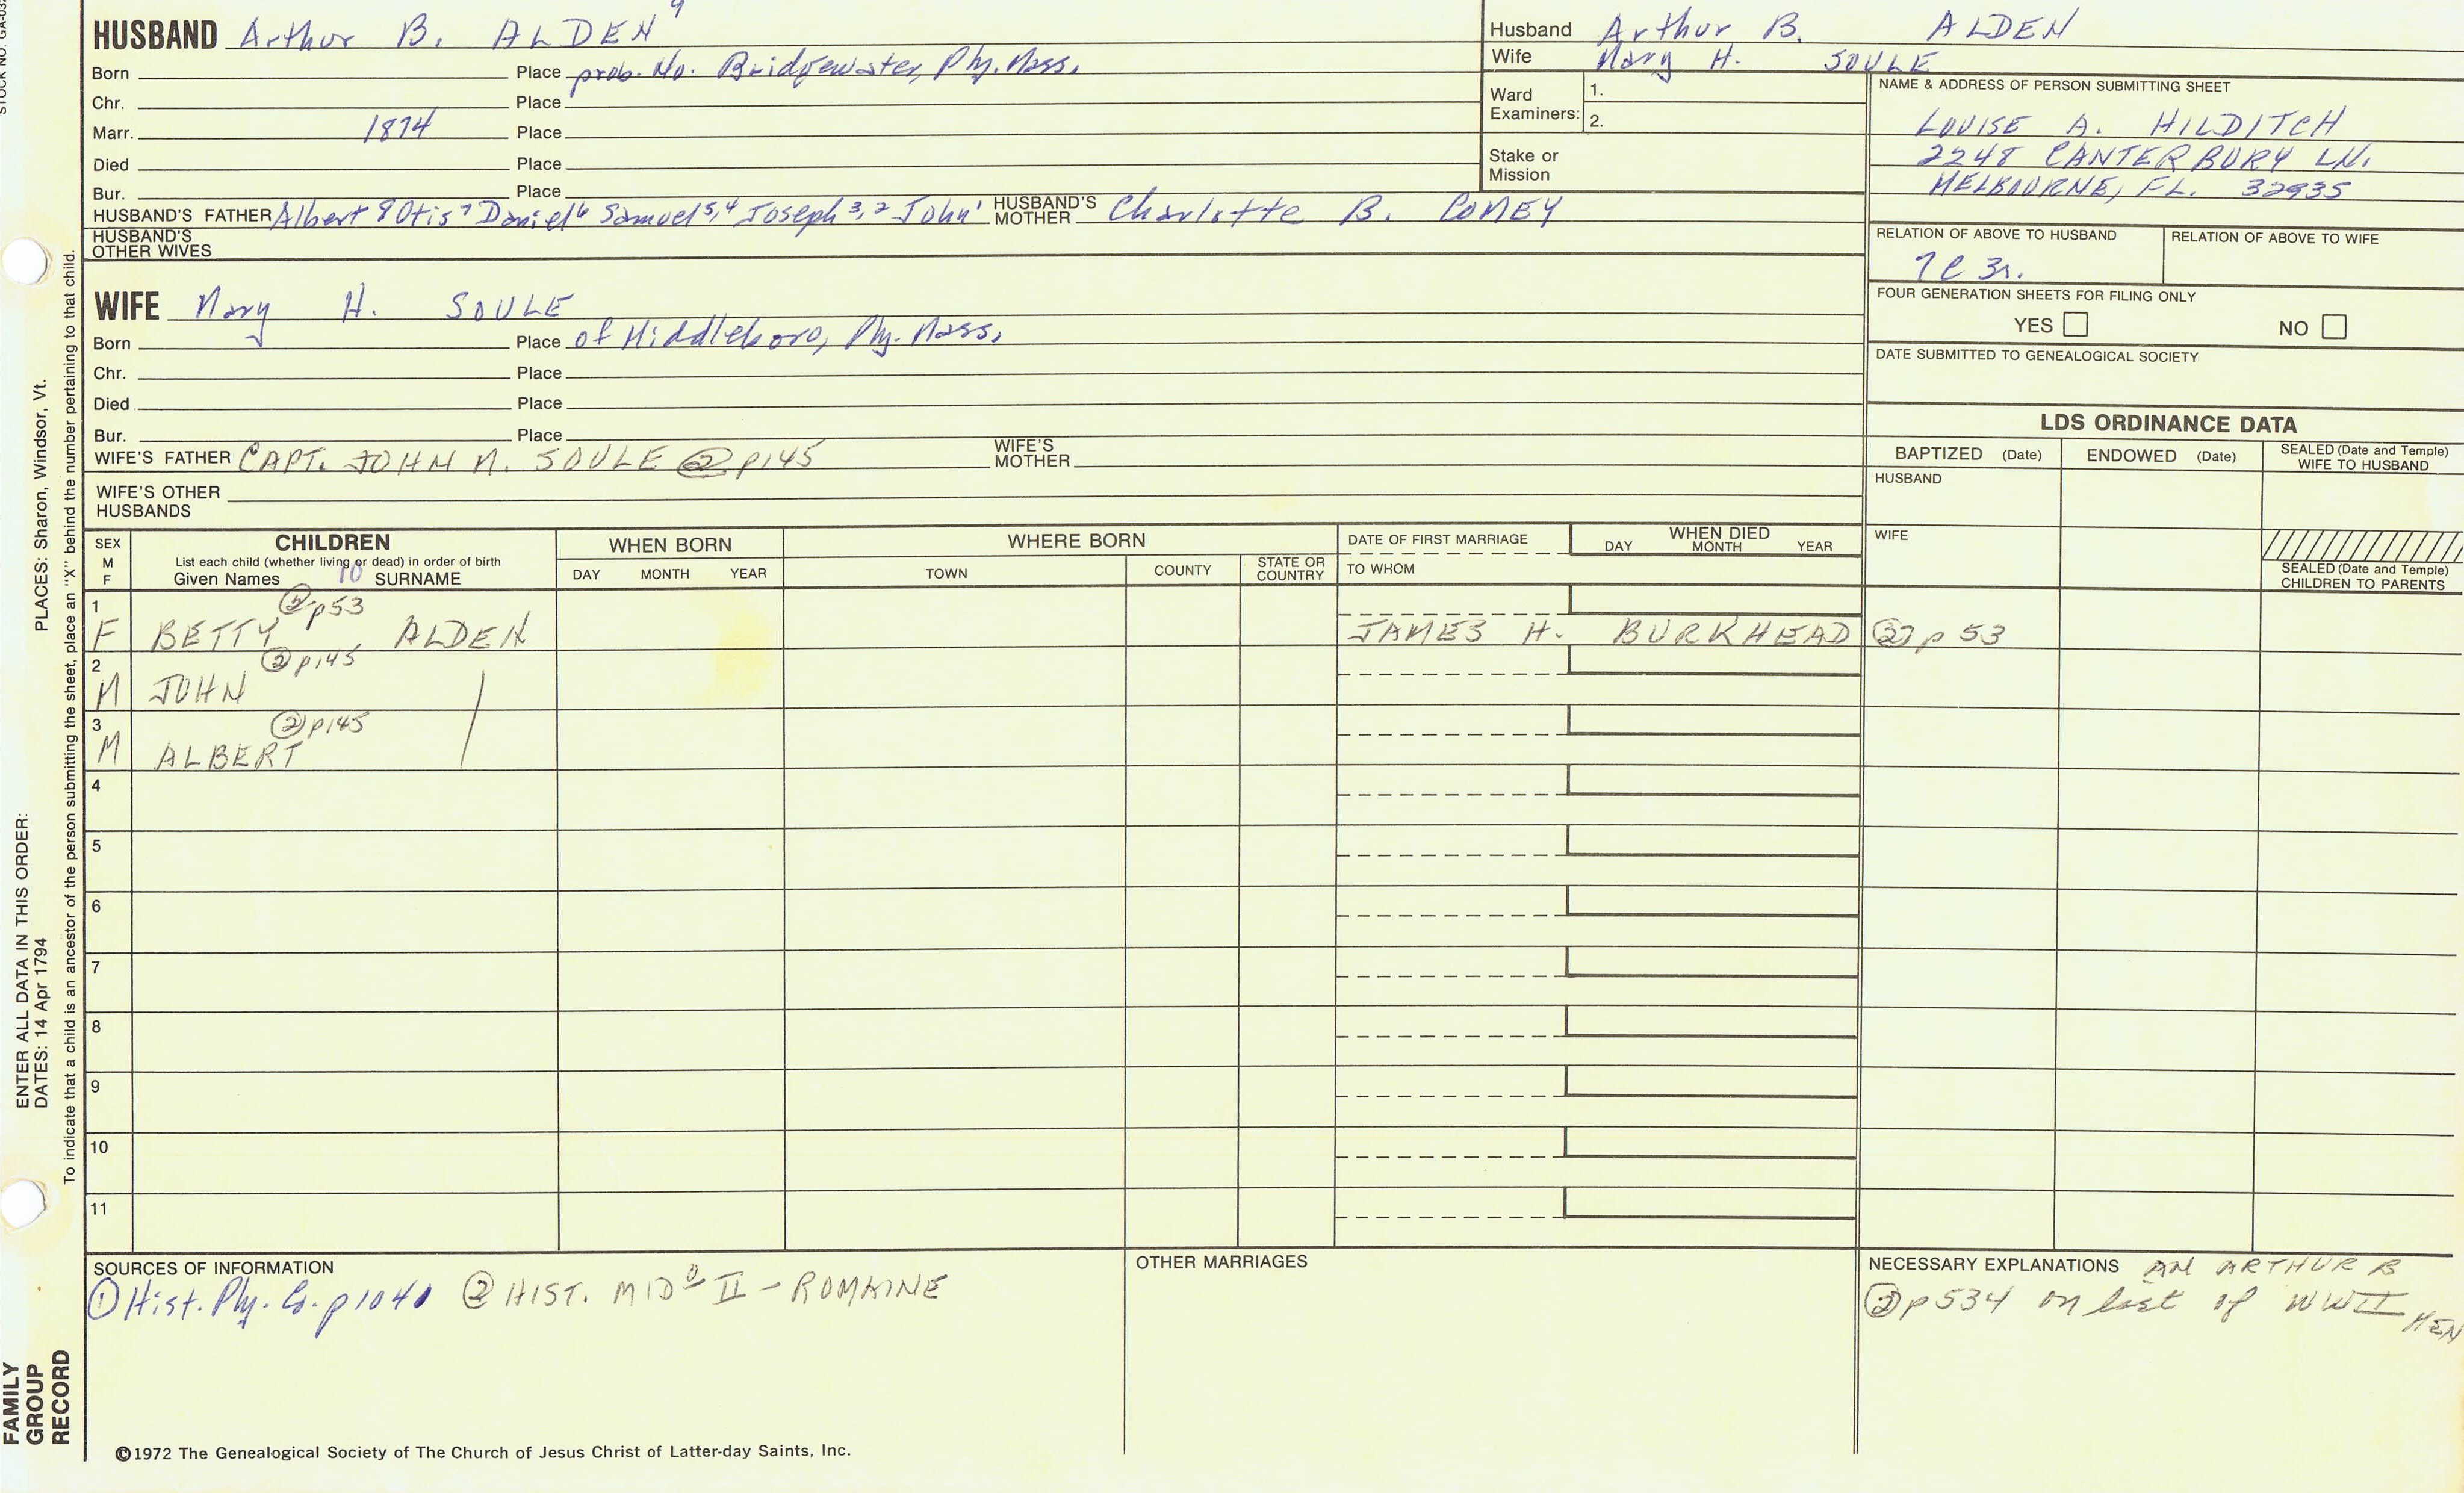 HUSBAND Arthur B. ALDEN 9
Born Place prob. No. Bridgewater, Ply. Mass.
Chr. Place
Marr. 1874 Place
Died Place
Bur. Place
HUSBAND'S FATHER Albert 8 Otis 7 Daniel 6 Samuel 5,4 Joseph 3,2 John 1 HUSBAND'S MOTHER Charlotte B. CONEY
HUSBAND'S OTHER WIVES
Husband Arthur B. ALDEN
Wife Mary H. SOULE
Ward Examiners: 1.
2.
Stake or Mission
NAME & ADDRESS OF PERSON SUBMITTING SHEET
LOUISE A. HILDITCH
2248 CANTERBURY LN.
MELBOURNE, FL. 32935
RELATION OF ABOVE TO HUSBAND RELATION OF ABOVE TO WIFE
7C 3r.
FOUR GENERATION SHEETS FOR FILING ONLY
YES NO
DATE SUBMITTED TO GENEALOGICAL SOCIETY
WIFE Mary H. SOULE
Born Place of Middleboro, Ply. Mass.
Chr. Place
Died Place
Bur. Place
WIFE'S FATHER CAPT. JOHN N. SOULE ② p145 WIFE'S MOTHER
WIFE'S OTHER HUSBANDS
LDS ORDINANCE DATA
BAPTIZED (Date) ENDOWED (Date) SEALED (Date and Temple) WIFE TO HUSBAND
HUSBAND
WIFE
SEALED (Date and Temple) CHILDREN TO PARENTS
SEX M F
CHILDREN
List each child (whether living or dead) in order of birth
Given Names 10 SURNAME
WHEN BORN
DAY MONTH YEAR
WHERE BORN
TOWN COUNTY STATE OR COUNTRY
DATE OF FIRST MARRIAGE
TO WHOM
WHEN DIED
DAY MONTH YEAR
1 ② p53
F BETTY ALDEN JAMES H. BURKHEAD ② p 53
2 ② p145
M JOHN
3 ② p145
M ALBERT
4
5
6
7
8
9
10
11
SOURCES OF INFORMATION
① Hist. Ply. Co. p1041 ② HIST. MID⁰ II - ROMAINE
OTHER MARRIAGES
NECESSARY EXPLANATIONS AN ARTHUR B
② p534 on list of WWII MEN
©1972 The Genealogical Society of The Church of Jesus Christ of Latter-day Saints, Inc.
FAMILY GROUP RECORD
ENTER ALL DATA IN THIS ORDER:
DATES: 14 Apr 1794
PLACES: Sharon, Windsor, Vt.
To indicate that a child is an ancestor of the person submitting the sheet, place an "X" behind the number pertaining to that child.